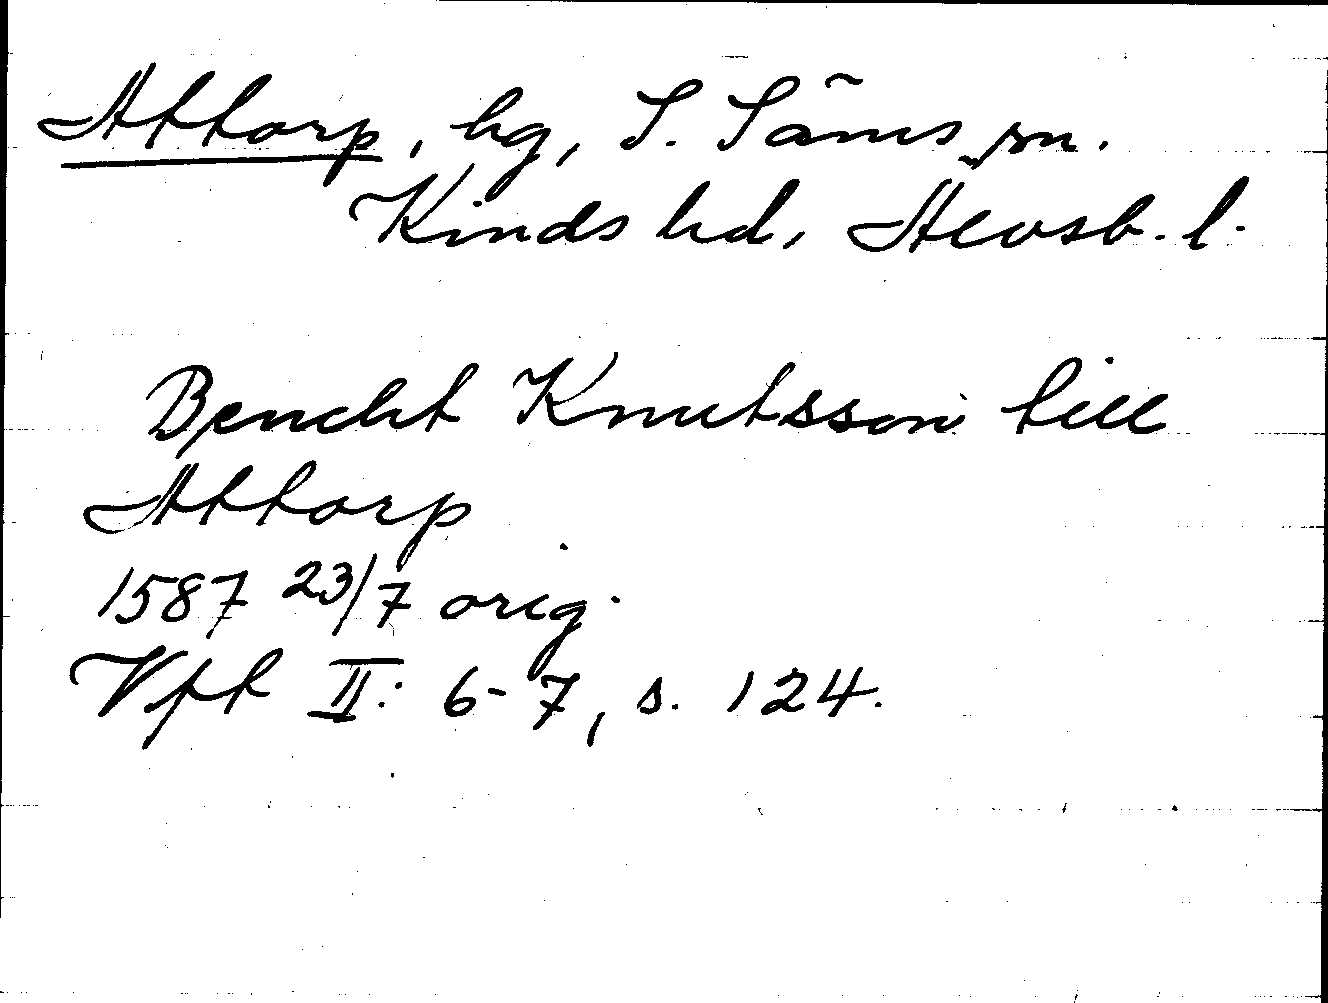 Attorp, hg, S. Säms sn.
Kinds hd, Älvsb. l.
Bencht Knutsson till
Attorp
1587 23/7 orig.
Vfk II: 6-7, s. 124.